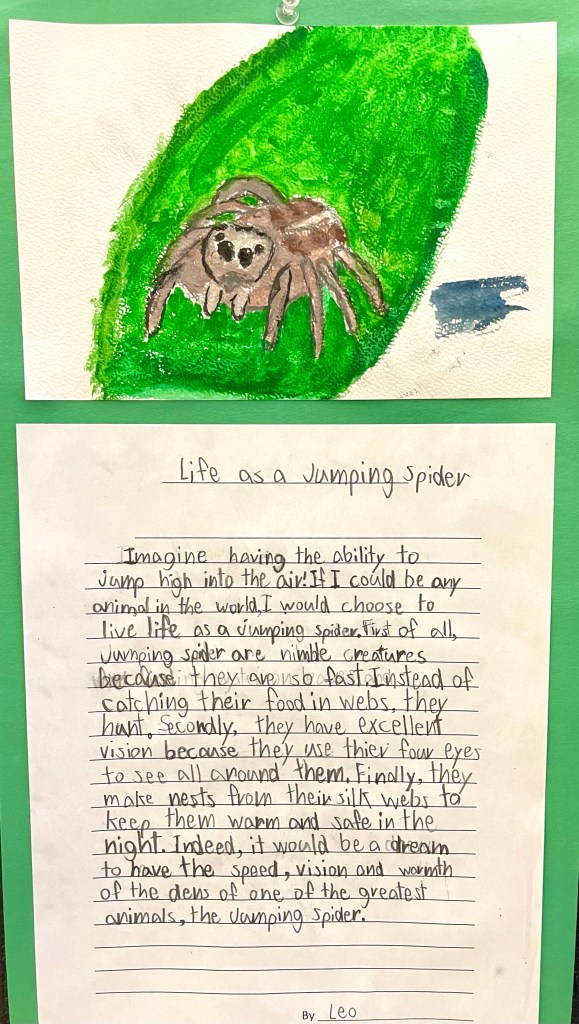 Life as a Jumping Spider
Imagine having the ability to
jump high into the air! If I could be any
animal in the world, I would choose to
live life as a Jumping spider. First of all,
Jumping spider are nimble creatures
because they are so fast. Instead of
catching their food in webs, they
hunt. Secondly, they have excellent
vision because they use thier four eyes
to see all around them. Finally, they
make nests from their silk webs to
keep them warm and safe in the
night. Indeed, it would be a dream
to have the speed, vision and warmth
of the dens of one of the greatest
animals, the Jumping Spider.
By Leo